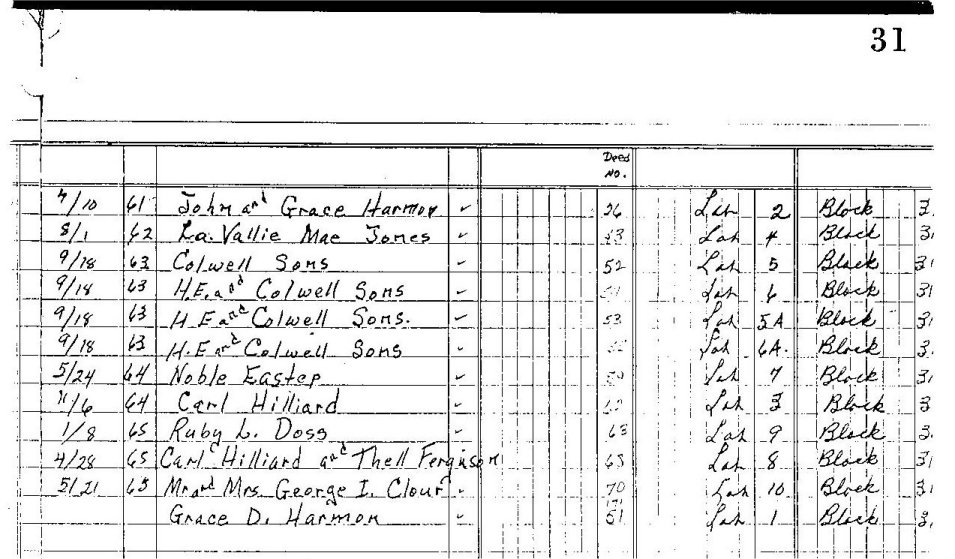 31
Deed
No.
4/10 61 John and Grace Harmon ✓ 26 Lot 2 Block 3
8/1 62 La. Vallie Mae Jones ✓ 43 Lot 4 Block 31
9/18 63 Colwell Sons ✓ 52 Lot 5 Block 31
9/18 63 H.E. and Colwell Sons ✓ Lot 6 Block 31
9/18 63 H E and Colwell Sons. ✓ 53 Lot 5A Block 31
9/18 63 H.E and Colwell Sons ✓ Lot 6A. Block 3
5/24 64 Noble Eastep ✓ Lot 7 Block 31
11/6 64 Carl Hilliard ✓ Lot 3 Block 3
1/8 65 Ruby L. Doss ✓ 63 Lot 9 Block 3
4/28 65 Carl Hilliard and Thell Ferguson 65 Lot 8 Block 31
5/21 65 Mr and Mrs. George I. Clour ✓ 70 Lot 10 Block 31
Grace D. Harmon ✓ 51 Lot 1 Block 3